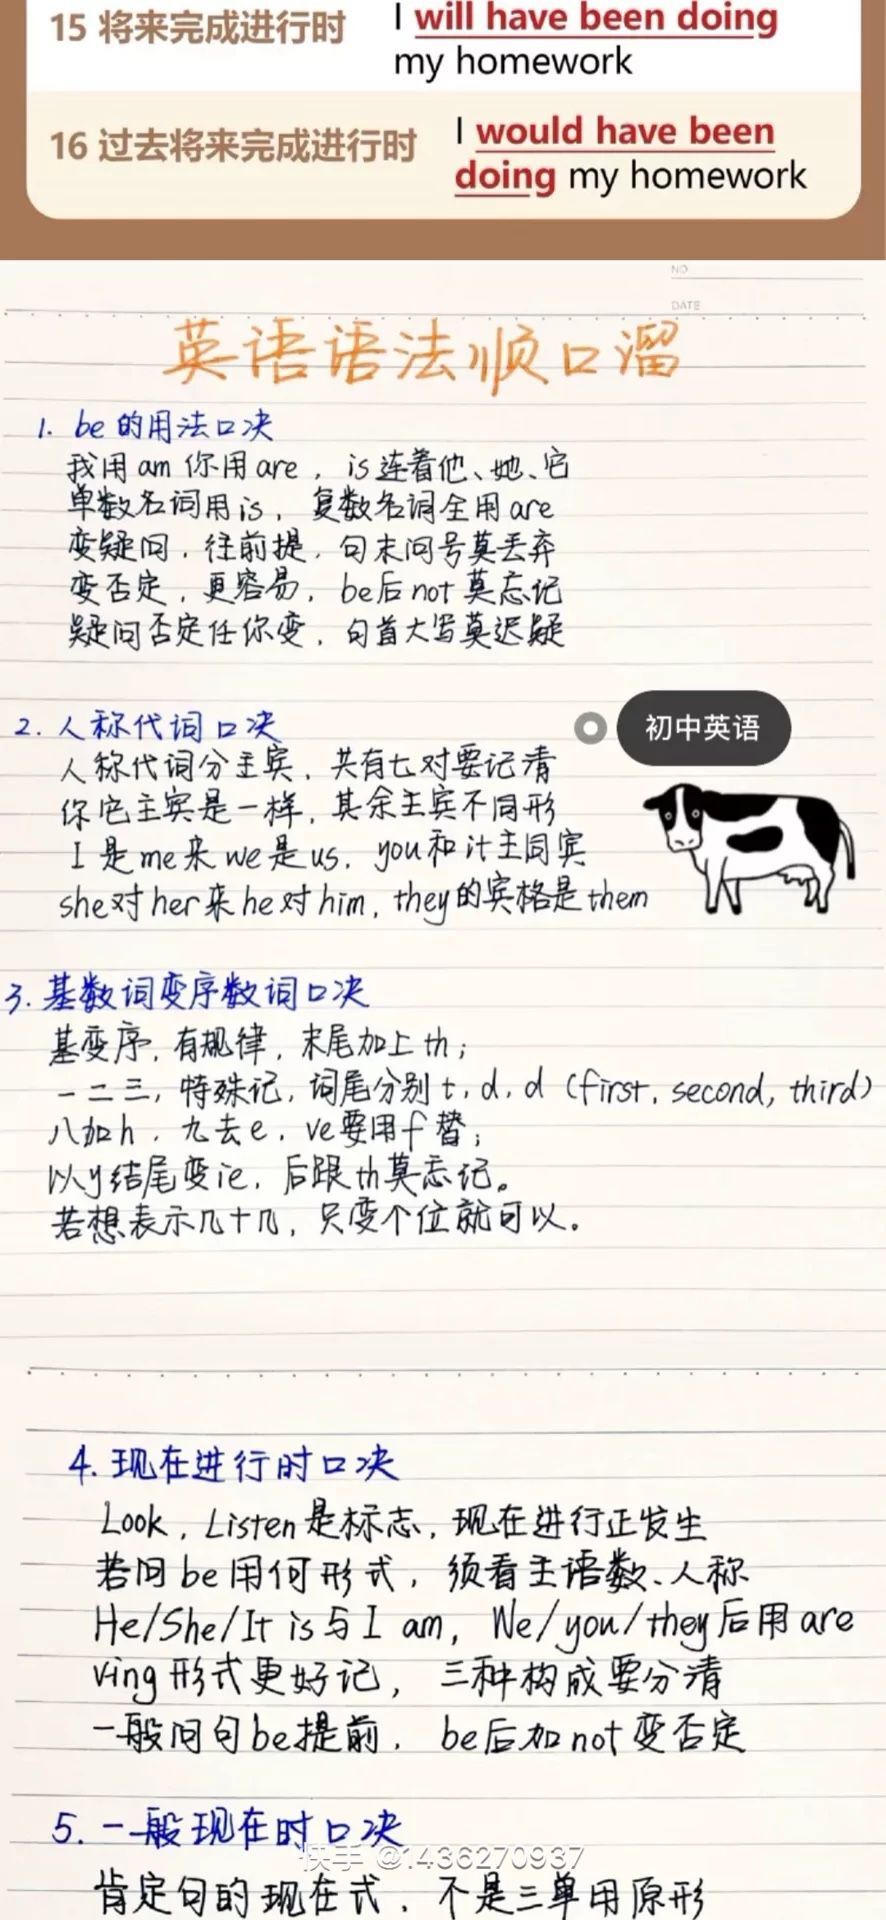 15 将来完成进行时
I will have been doing
my homework
16 过去将来完成进行时
I would have been
doing my homework
NO
DATE
英语语法顺口溜
1. be的用法口决
我用am 你用are，is连着他、她、它
单数名词用is，复数名词全用are
变疑问，往前提，句末问号莫丢弃
变否定，更容易，be后not莫忘记
疑问否定任你变，句首大写莫迟疑
2. 人称代词口决
初中英语
人称代词分主宾，共有七对要记清
你它主宾是一样，其余主宾不同形
I 是me来we是us，you和it主同宾
she对her来he对him，they的宾格是them
3. 基数词变序数词口决
基变序，有规律，末尾加上th；
一二三，特殊记，词尾分别t，d，d（first，second，third）
八加h，九去e，ve要用f替；
以y结尾变ie，后跟th莫忘记。
若想表示几十几，只变个位就可以。
4. 现在进行时口决
Look，Listen是标志，现在进行正发生
若问be用何形式，须看主语数、人称
He/She/It is与I am，We/you/they后用are
ving形式更好记，三种构成要分清
一般问句be提前，be后加not变否定
5. 一般现在时口决
快手 @1436270937
肯定句的现在式，不是三单用原形